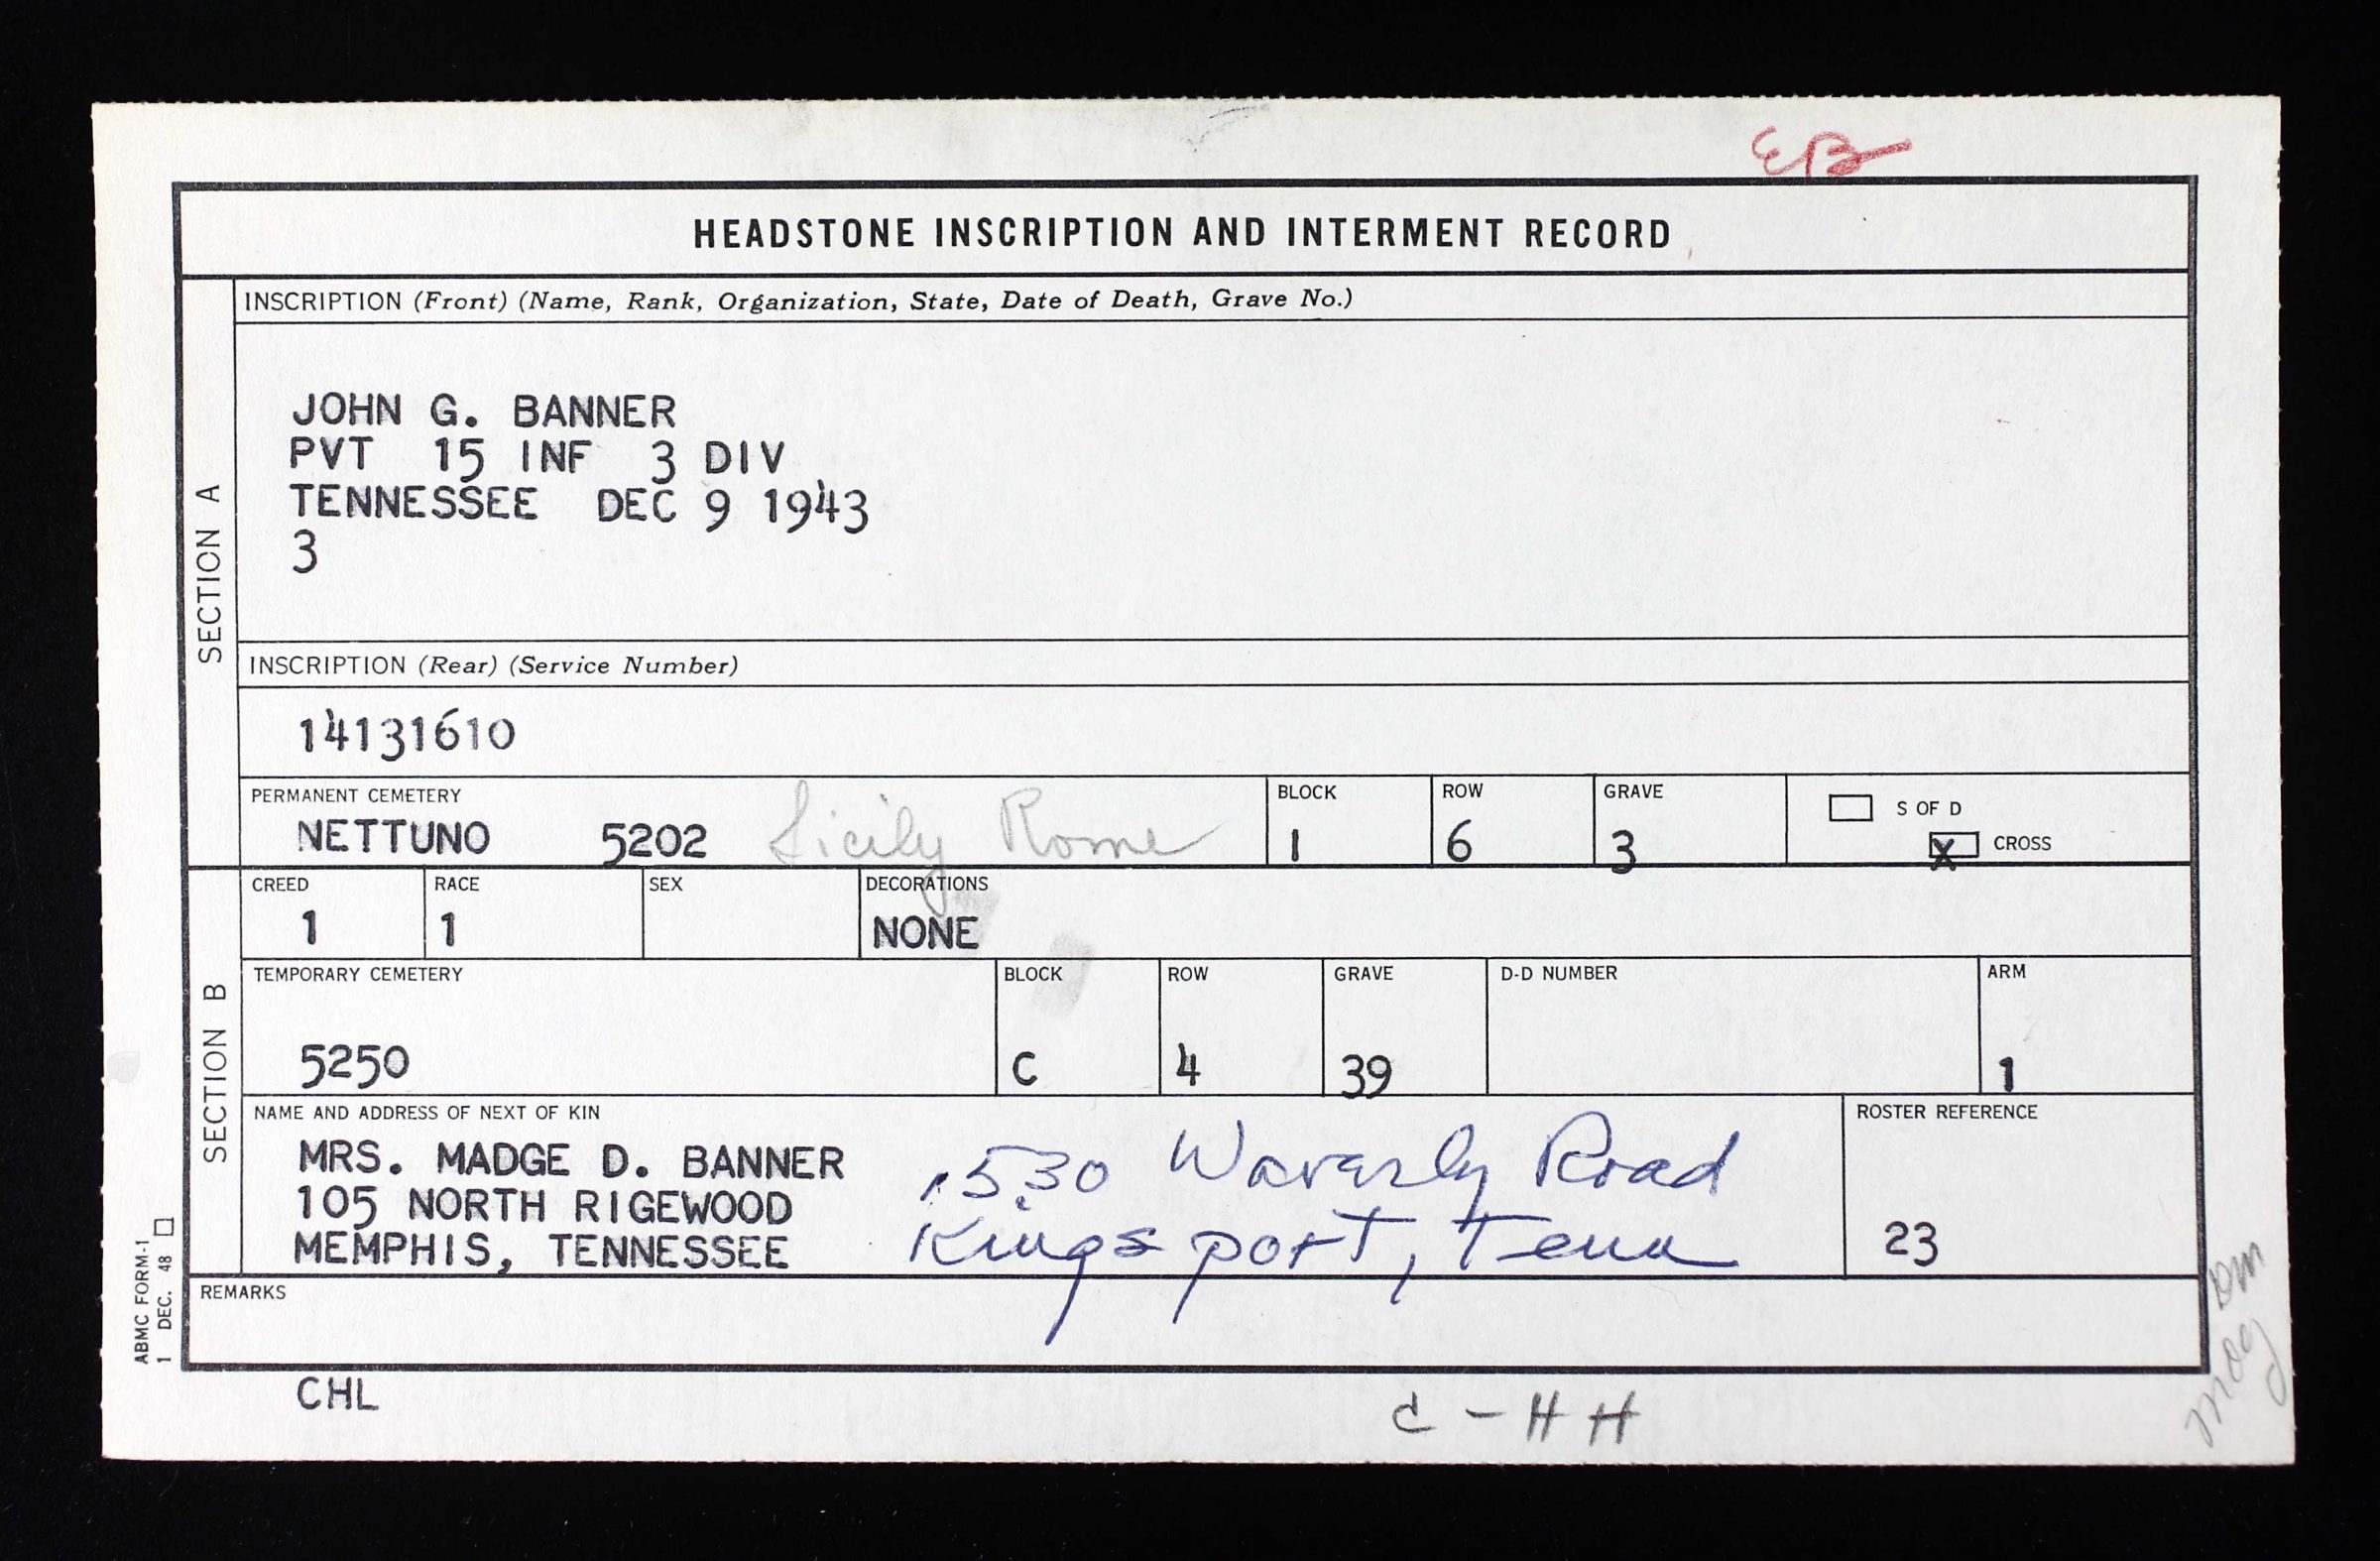 EB
HEADSTONE INSCRIPTION AND INTERMENT RECORD
SECTION A
INSCRIPTION (Front) (Name, Rank, Organization, State, Date of Death, Grave No.)
JOHN G. BANNER
PVT 15 INF 3 DIV
TENNESSEE DEC 9 1943
3
INSCRIPTION (Rear) (Service Number)
14131610
PERMANENT CEMETERY BLOCK ROW GRAVE S OF D
NETTUNO 5202 Sicily Rome 1 6 3 X CROSS
SECTION B
CREED RACE SEX DECORATIONS
1 1 NONE
TEMPORARY CEMETERY BLOCK ROW GRAVE D-D NUMBER ARM
5250 C 4 39 1
NAME AND ADDRESS OF NEXT OF KIN ROSTER REFERENCE
MRS. MADGE D. BANNER 1530 Waverly Road
105 NORTH RIGEWOOD Kingsport, Tenn
MEMPHIS, TENNESSEE 23
REMARKS
ABMC FORM-1
1 DEC. 48
CHL
C - HH